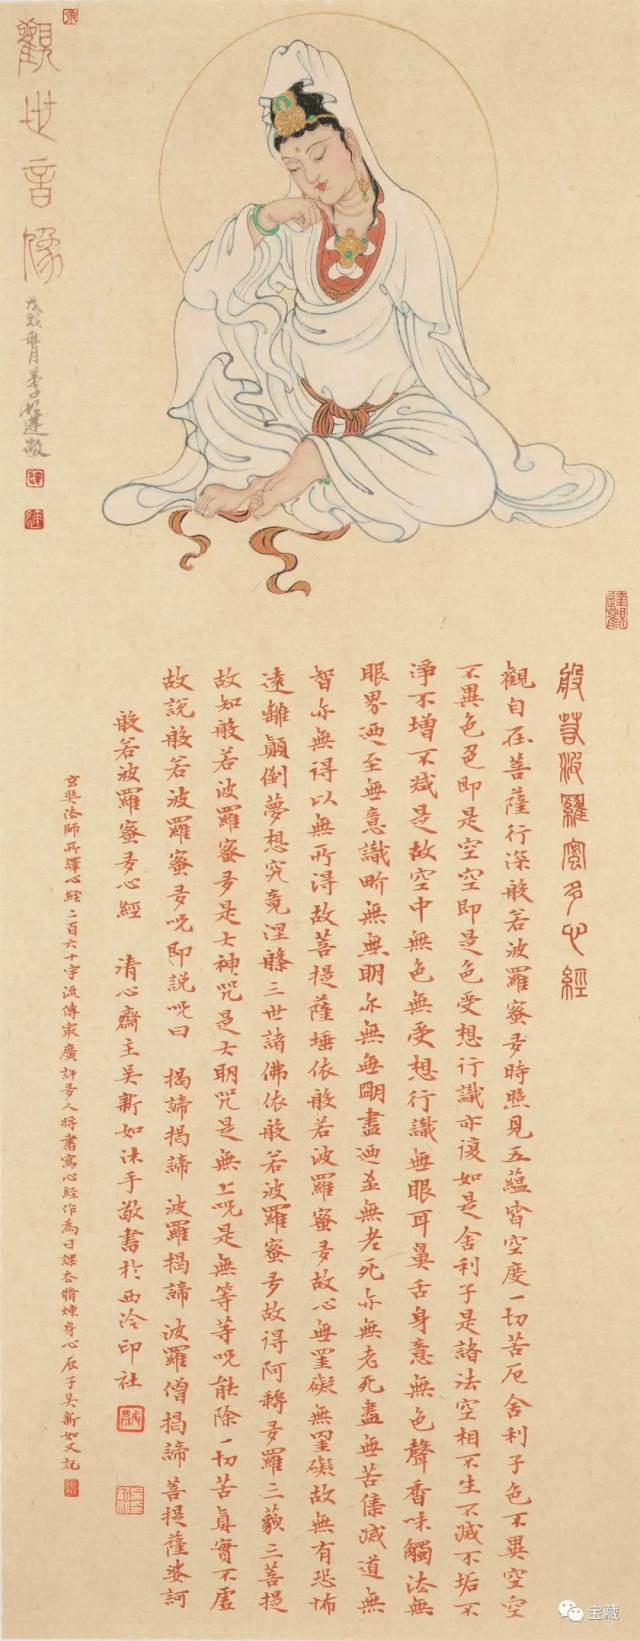 觀世音像
戊戌
般若波羅蜜多心經
觀自在菩薩行深般若波羅蜜多時照見五蘊皆空度一切苦厄舍利子色不異空空
不異色色即是空空即是色受想行識亦復如是舍利子是諸法空相不生不滅不垢不
淨不增不減是故空中無色無受想行識無眼耳鼻舌身意無色聲香味觸法無
眼界迺至無意識界無無明亦無無明盡迺至無老死亦無老死盡無苦集滅道無
智亦無得以無所得故菩提薩埵依般若波羅蜜多故心無罣礙無罣礙故無有恐怖
遠離顛倒夢想究竟涅槃三世諸佛依般若波羅蜜多故得阿耨多羅三藐三菩提
故知般若波羅蜜多是大神咒是大明咒是無上咒是無等等咒能除一切苦真實不虛
故說般若波羅蜜多咒即說咒曰 揭諦揭諦 波羅揭諦 波羅僧揭諦 菩提薩婆訶
般若波羅蜜多心經 清心齋主吳新如沐手敬書於西泠印社
玄奘法師所譯心經二百六十字流傳最廣許多人將書寫心經作為日課脩煉身心吳新如又記
宝藏